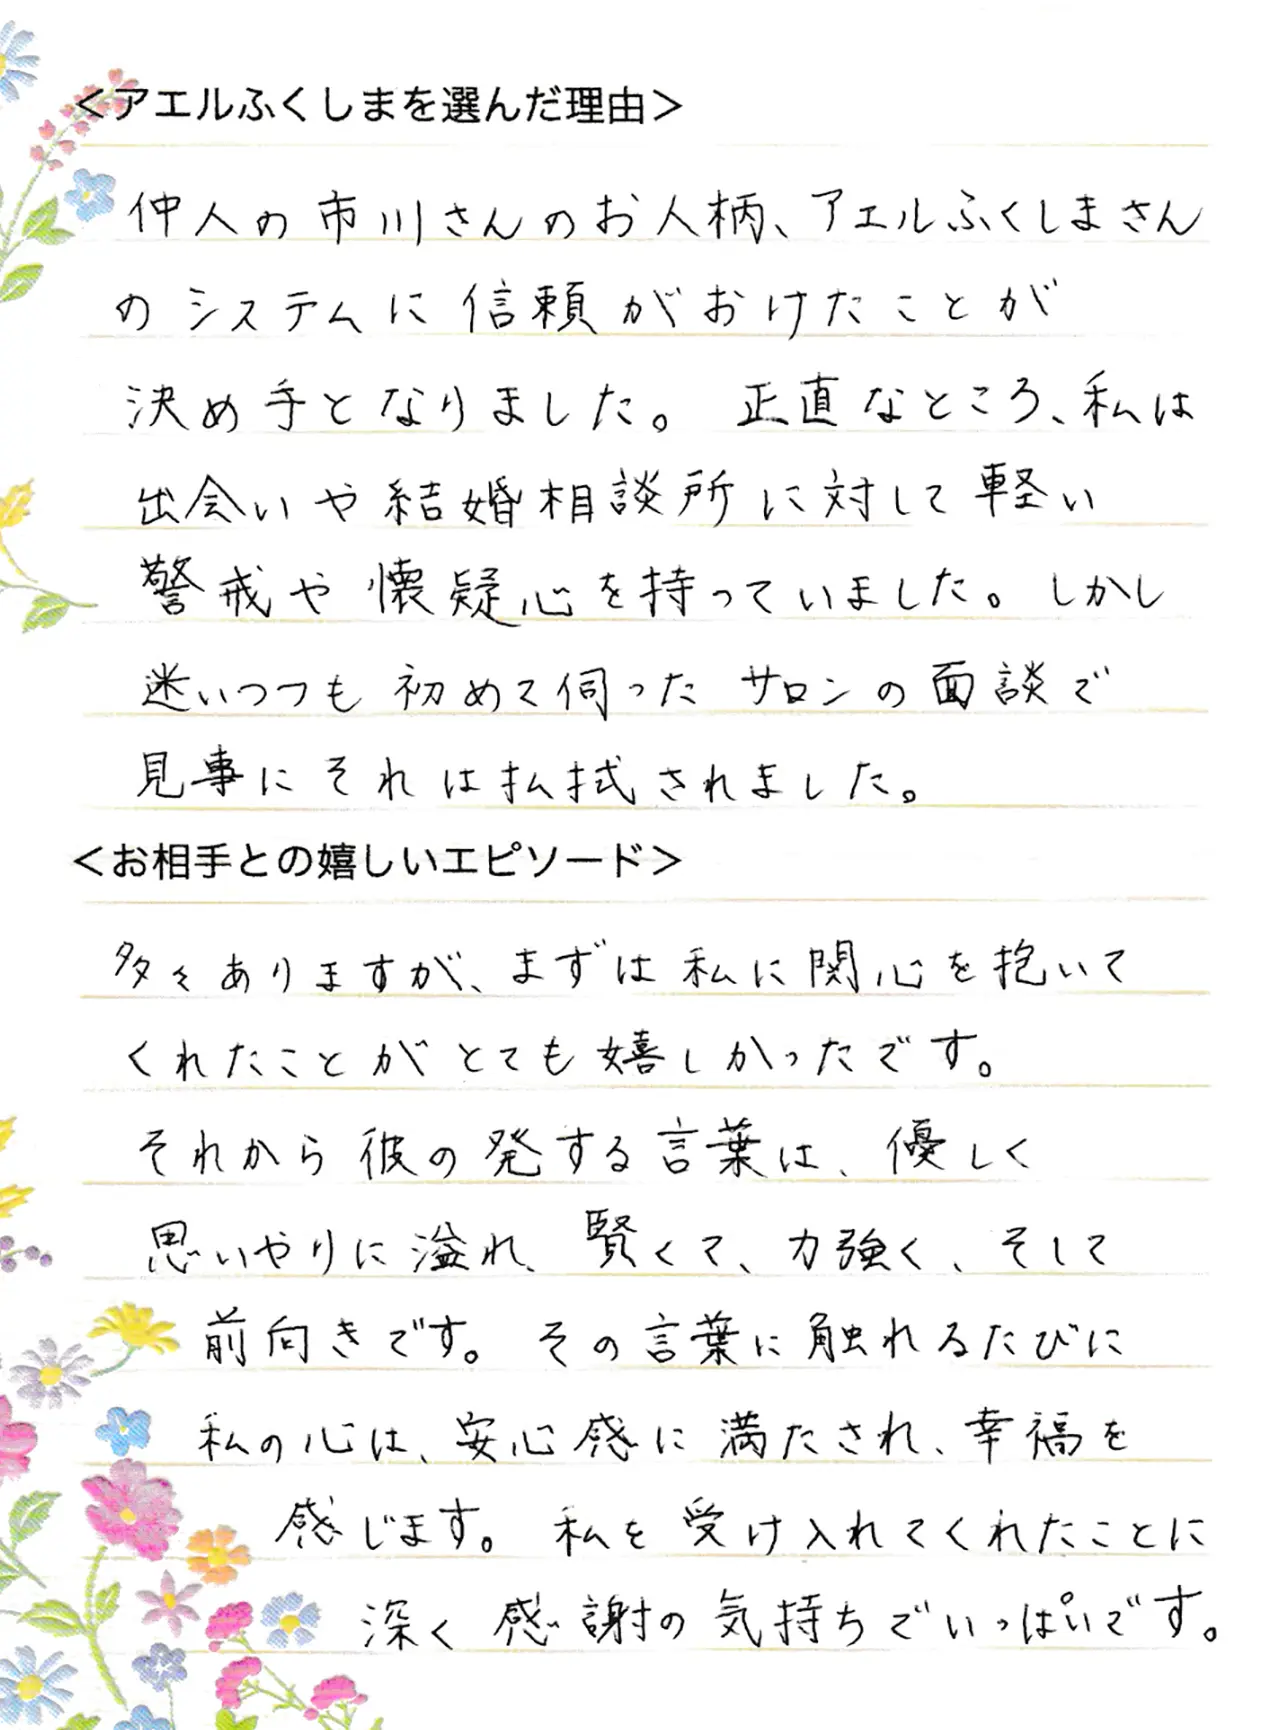 ＜アエルふくしまを選んだ理由＞
仲人の市川さんのお人柄、アエルふくしまさん
のシステムに信頼がおけたことが
決め手となりました。正直なところ、私は
出会いや結婚相談所に対して軽い
警戒や懐疑心を持っていました。しかし
迷いつつも初めて伺ったサロンの面談で
見事にそれは払拭されました。
＜お相手との嬉しいエピソード＞
多々ありますが、まずは私に関心を抱いて
くれたことがとても嬉しかったです。
それから彼の発する言葉は、優しく
思いやりに溢れ、賢くて、力強く、そして
前向きです。その言葉に触れるたびに
私の心は、安心感に満たされ、幸福を
感じます。私を受け入れてくれたことに
深く感謝の気持ちでいっぱいです。